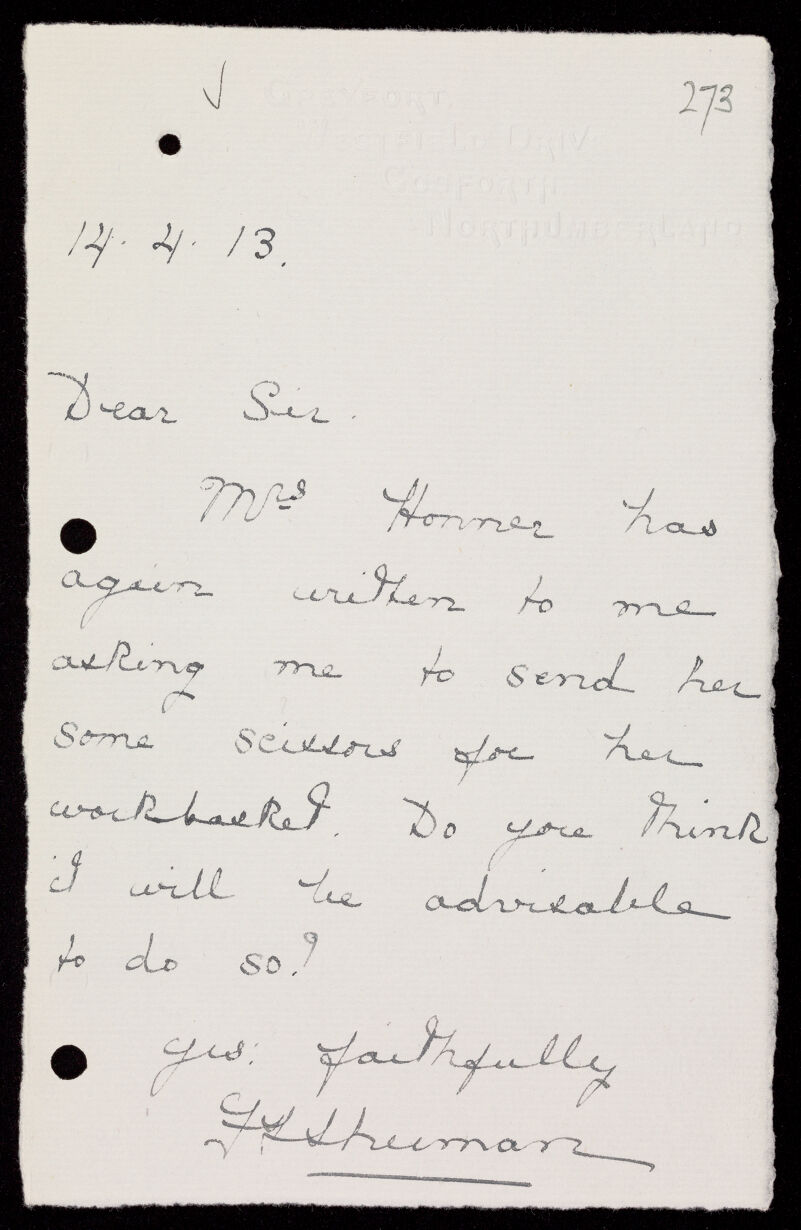 273
GREYFORT,
WESTFIELD DRIVE
GOSFORTH
NORTHUMBERLAND
14. 4. 13.
Dear Sir.
Mrs Honner has
again written to me
asking me to send her
some scissors for her
workbasket. Do you think
it will be advisable
to do so?
yrs: faithfully